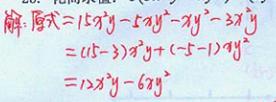 解:原式=15x²y-5xy²-xy²-3x²y
=(15-3)x²y+(-5-1)xy²
=12x²y-6xy²